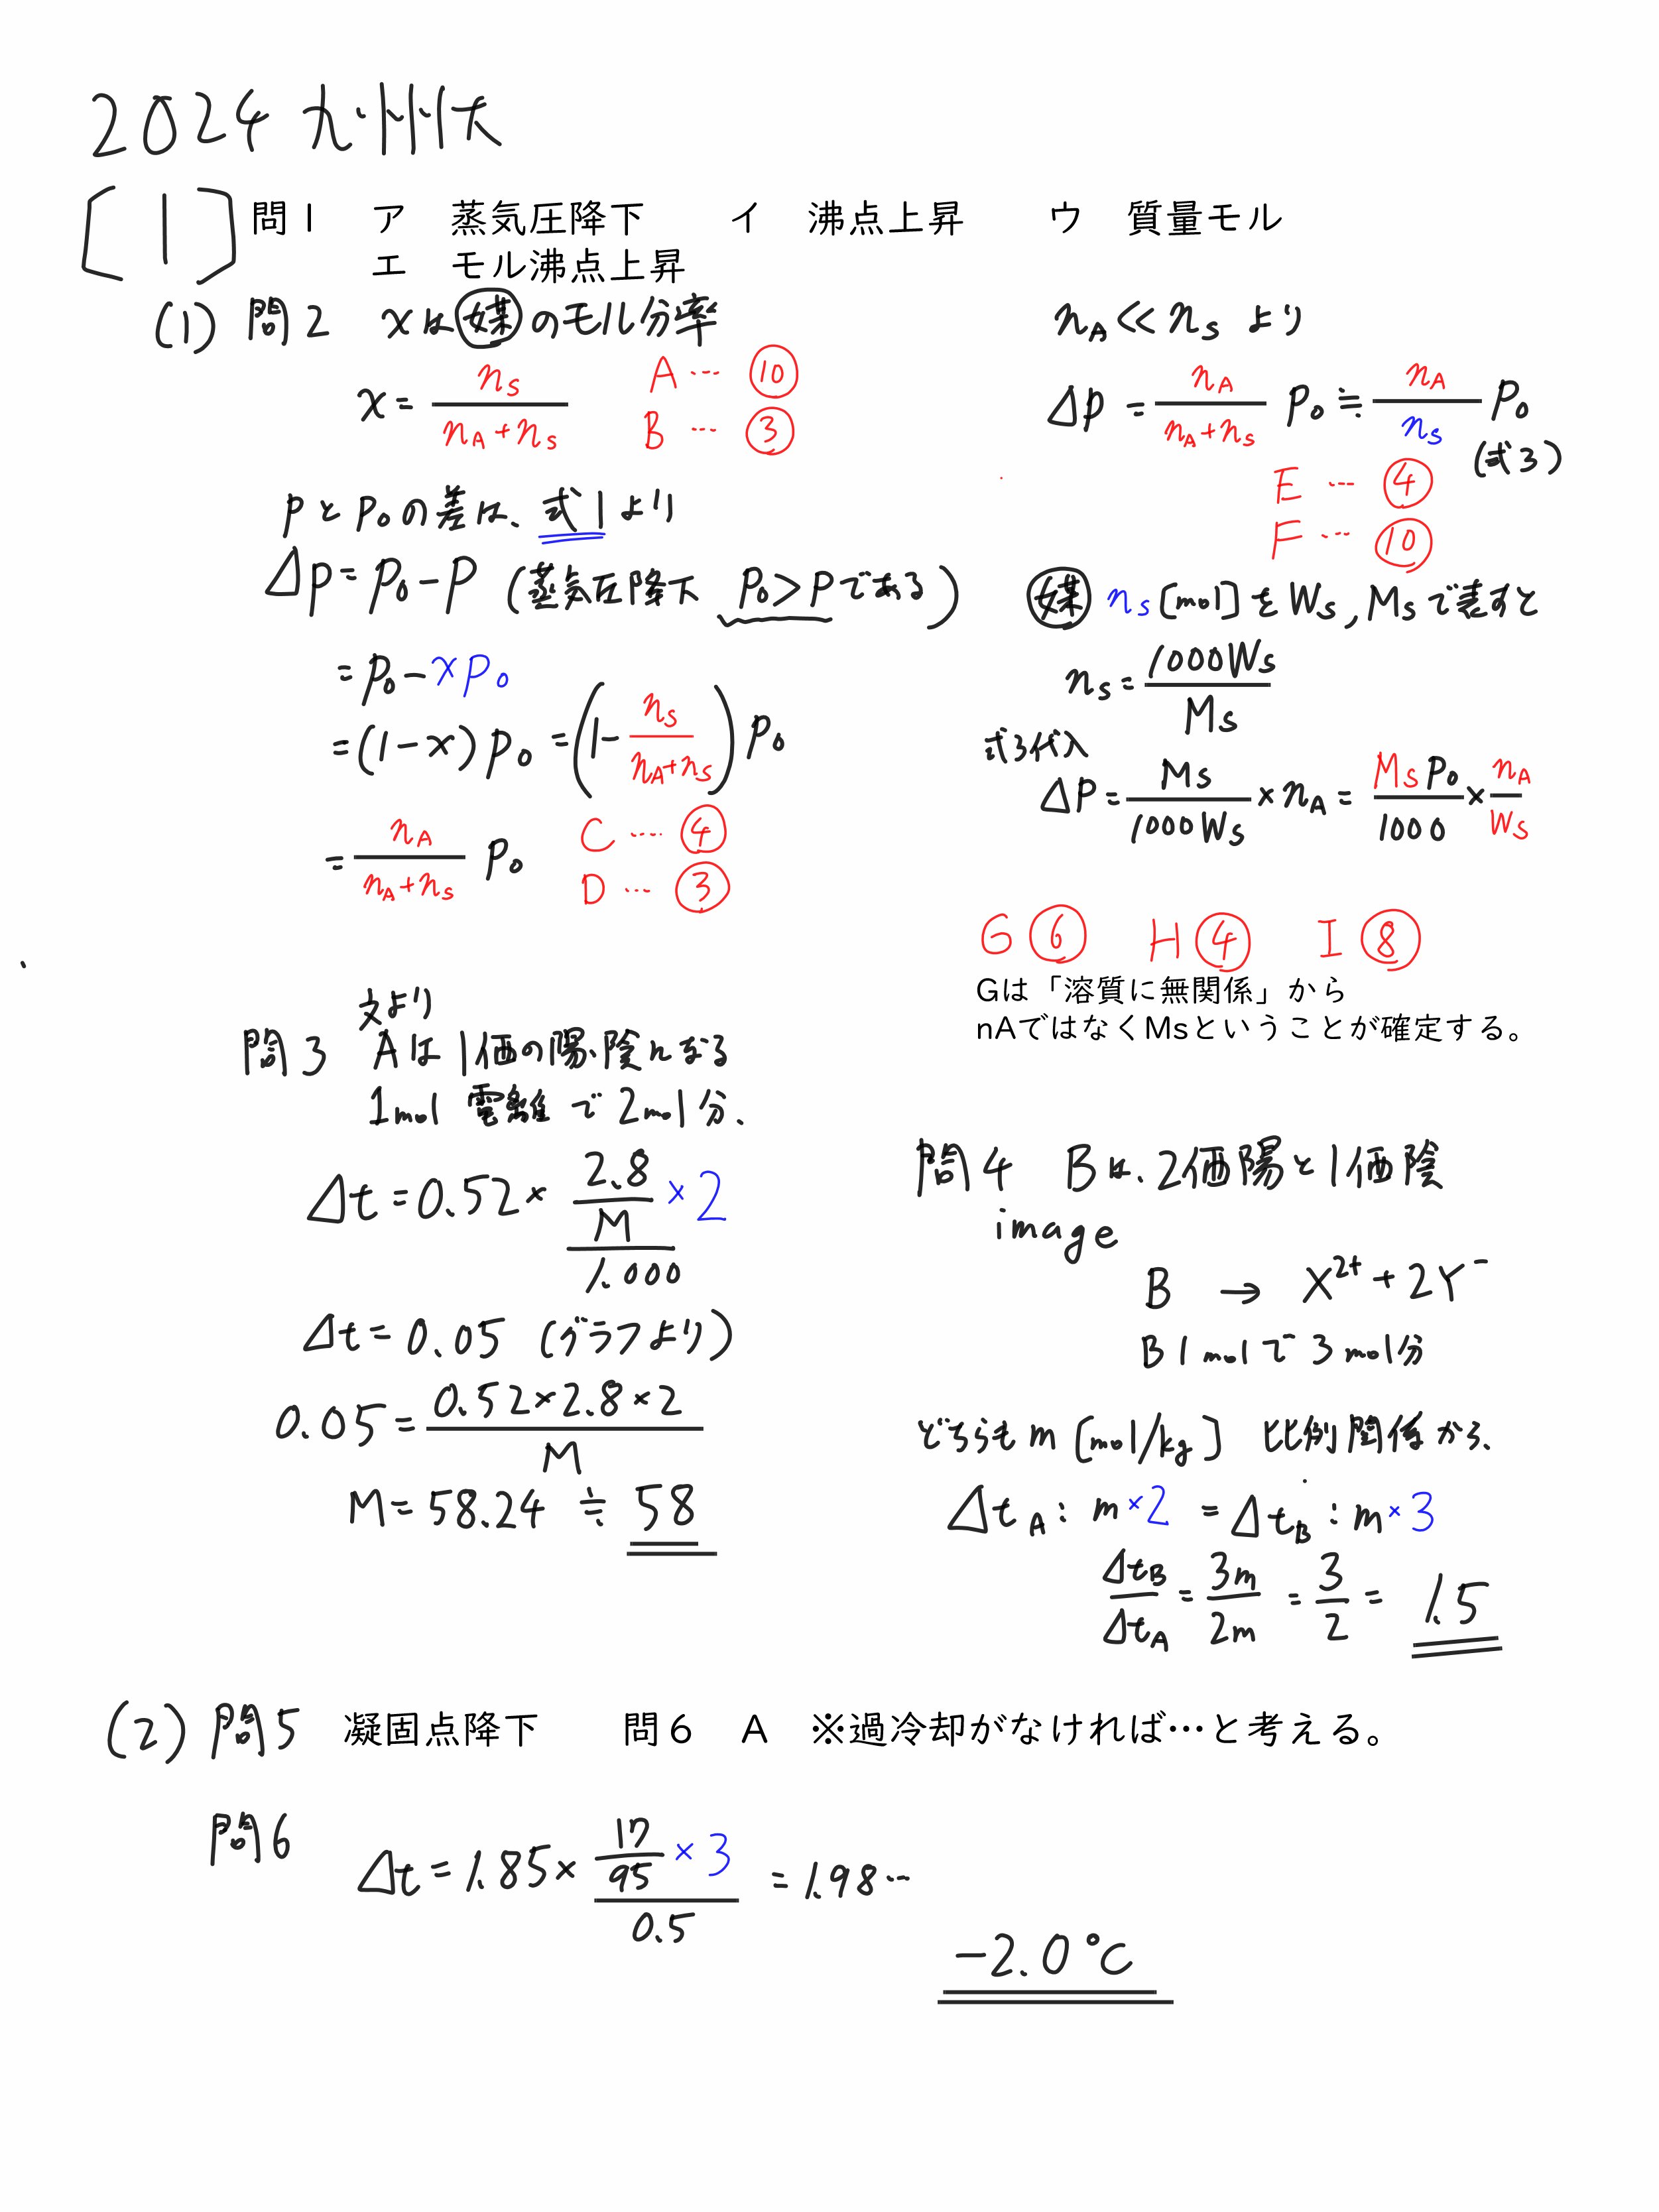 2024 九州大
[1] 問1 ア 蒸気圧降下 イ 沸点上昇 ウ 質量モル
エ モル沸点上昇
(1) 問2 xは媒のモル分率
x = nS/(nA+nS)
A … ⑩
B … ③
pとp0の差は、式1より
Δp = p0 − p (蒸気圧降下 p0 > p である)
= p0 − xp0
= (1−x)p0 = (1 − nS/(nA+nS)) p0
= nA/(nA+nS) p0
C … ④
D … ③
nA ≪ nS より
Δp = nA/(nA+nS) p0 ≒ nA/nS p0
(式3)
E … ④
F … ⑩
媒 nS [mol] を WS, MS で表すと
nS = 1000WS/MS
式3代入
ΔP = MS/1000WS × nA = MS p0/1000 × nA/WS
G ⑥ H ④ I ⑧
Gは「溶質に無関係」から
nAではなくMsということが確定する。
文より
問3 Aは1価の陽、陰になる
1mol 電離で2mol分.
Δt = 0.52 × (2.8/M × 2)/1.000
Δt = 0.05 (グラフより)
0.05 = 0.52×2.8×2/M
M = 58.24 ≒ 58
問4 Bは、2価陽と1価陰
image
B → X2+ + 2Y−
B 1mol で 3mol分
どちらも m [mol/kg] 比例関係から、
ΔtA : m×2 = ΔtB : m×3
ΔtB/ΔtA = 3m/2m = 3/2 = 1.5
(2) 問5 凝固点降下 問6 A ※過冷却がなければ…と考える。
問6 Δt = 1.85 × (17/95 × 3)/0.5 = 1.98…
−2.0 ℃